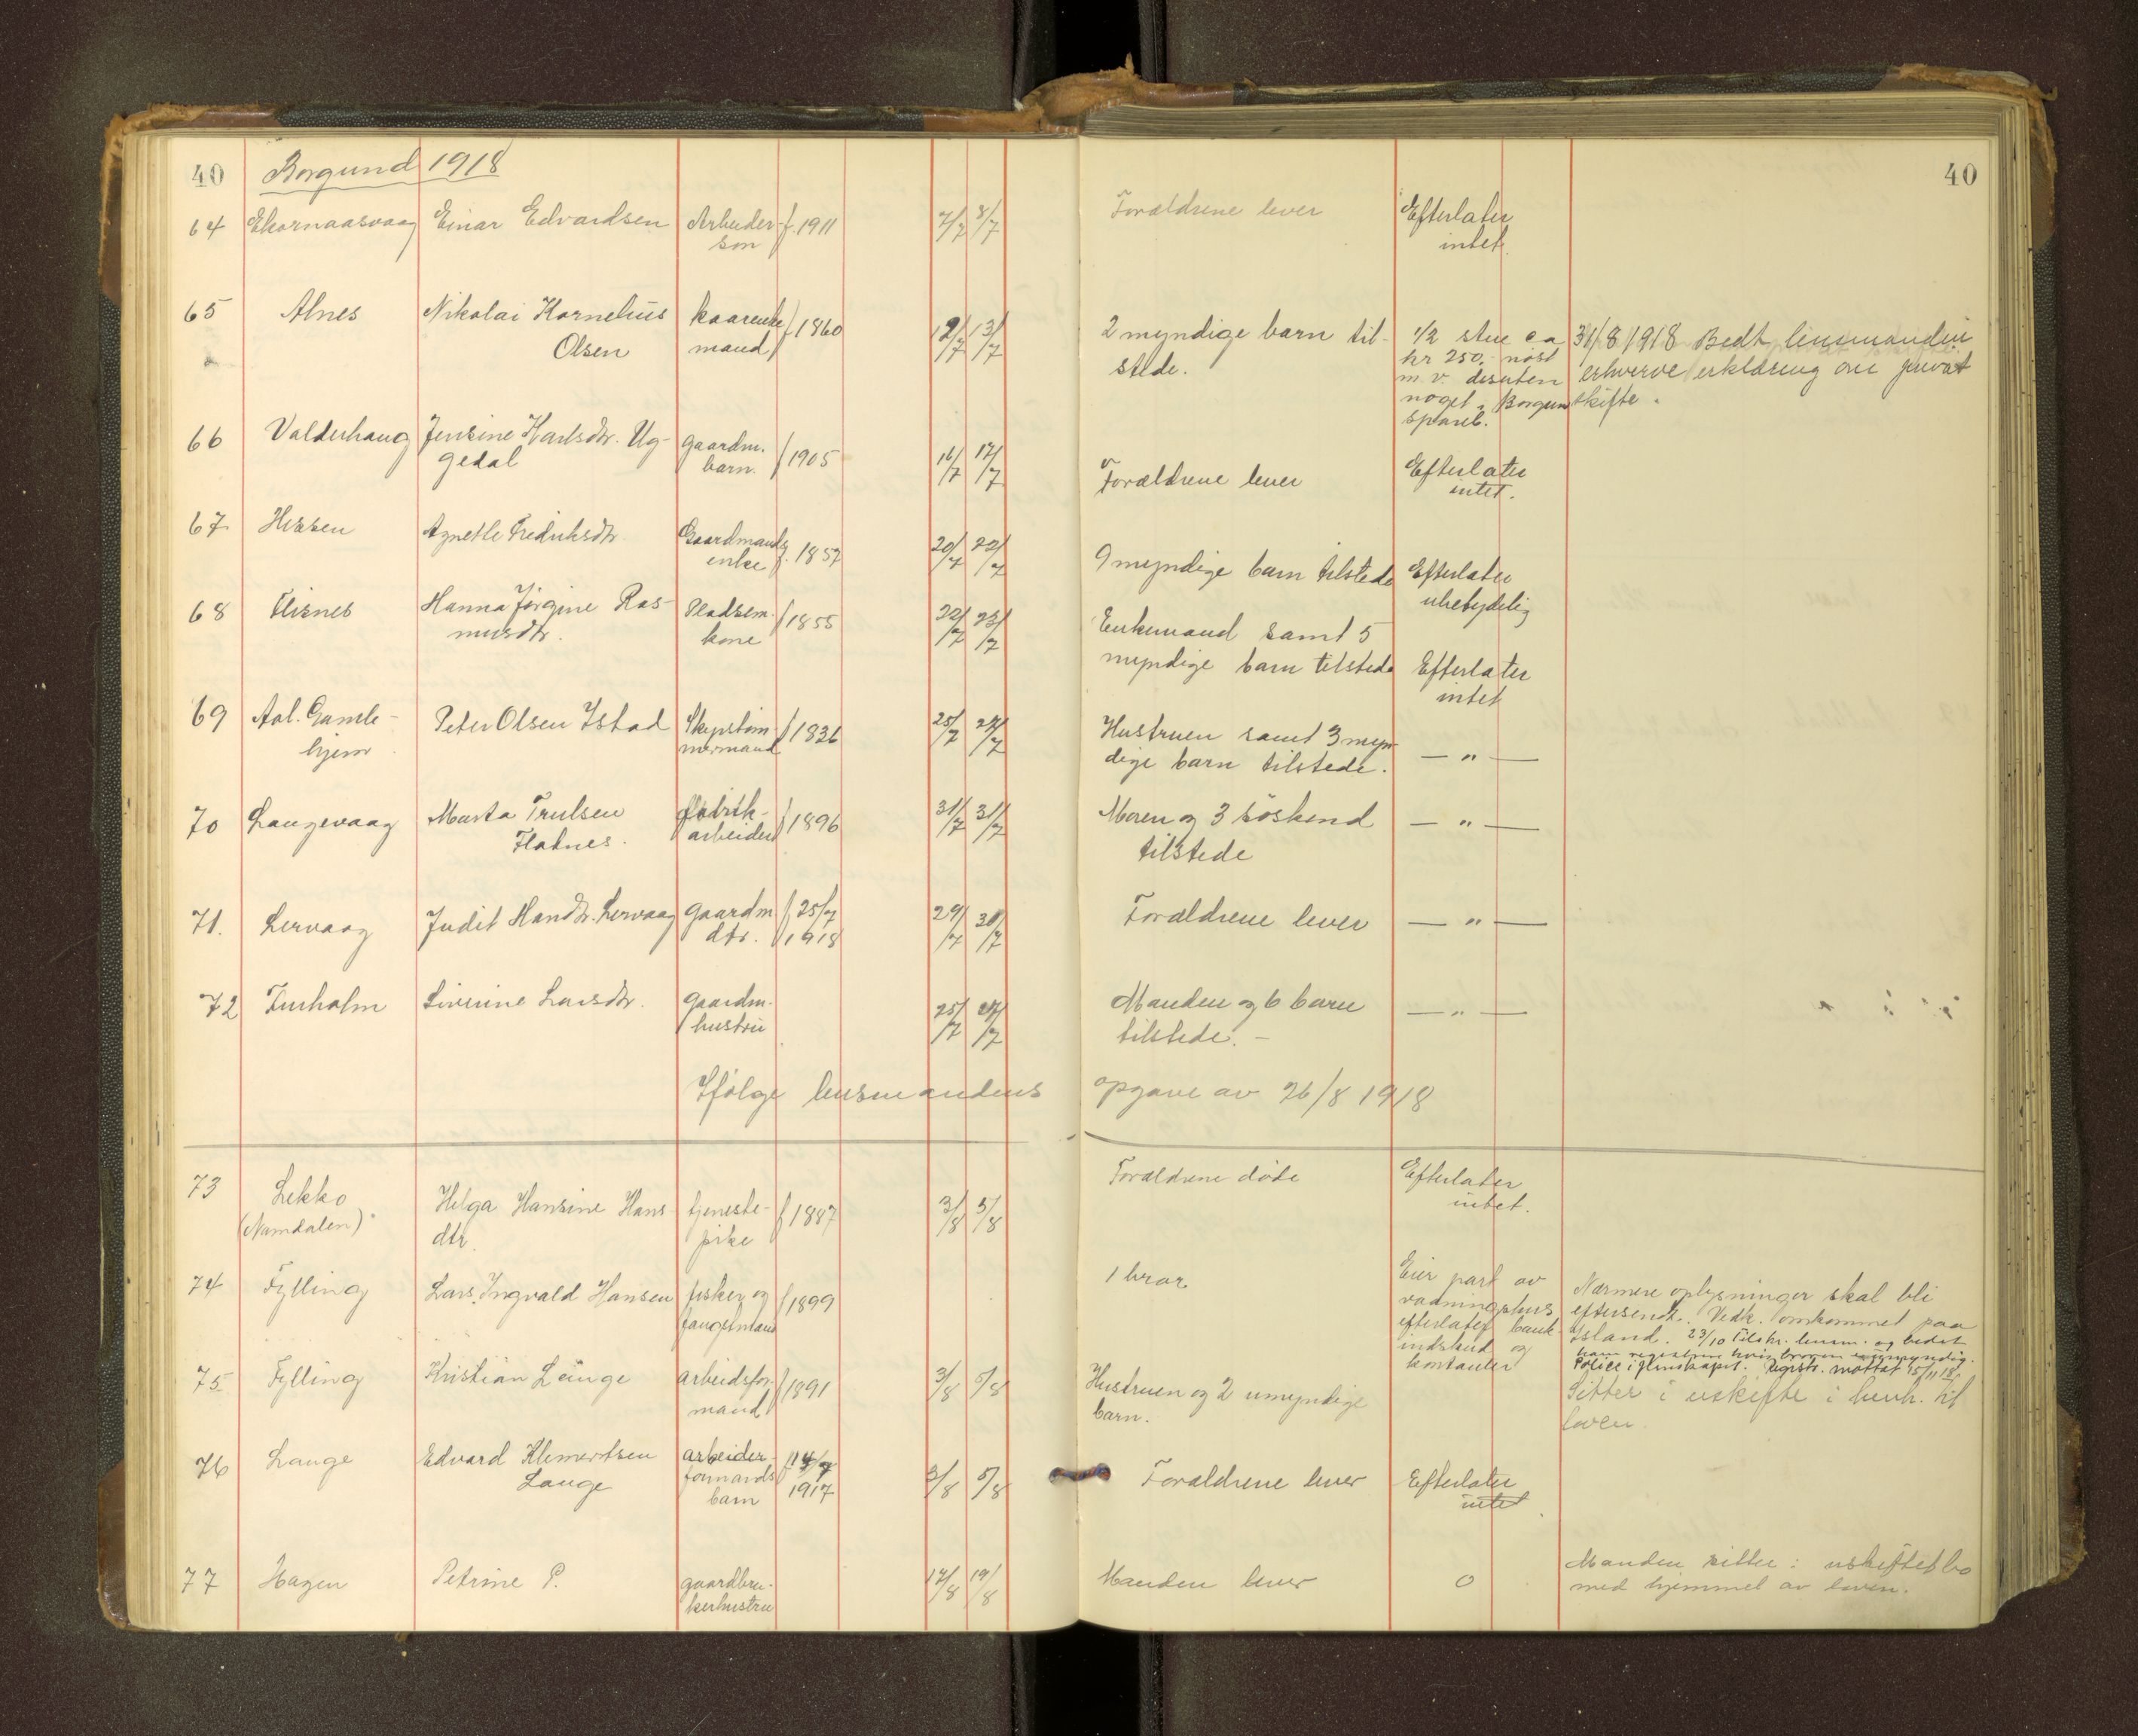 40 Borgund 1918 40
64 Ekornaasvaag Einar Edvardsen Arbeider- f. 1911 7/7 8/7 Forældrene lever Efterlater
søn intet
65 Alnes Nikolai Kornelius kaarenke f 1860 12/7 13/7 2 myndige barn til- 1/2 stue ca 31/8 1918 Bedt lensmanden
Olsen mand stede. kr 250,- nøst erhverve erklæring om privat
m. v. desuten skifte.
noget i Borgund
spareb.
66 Valderhaug Jensine Karlsdtr. Ug- gaardm. f 1905 16/7 17/7 Forældrene lever Efterlater
gedal barn. intet.
67 Hessen Agnethe Fredriksdtr. Gaardmands f. 1857 20/7 22/7 9 myndige barn tilstede Efterlater
enke ubetydelig
68 Flisnes Hanna Jørgine Ras- Pladsm. f 1855 22/7 23/7 Enkemand samt 5
musdtr. kone myndige barn tilstede Efterlater
intet
69 Aal. Gamle- Peter Olsen Ystad Skipstøm- f 1836 25/7 27/7 Hustruen samt 3 myn-
hjem mermand dige barn tilstede. — " —
70 Langevaag Marta Trulsen fabrik- f 1896 31/7 31/7 Moren og 3 søskend — " —
Flatnes. arbeider tilstede
71. Lervaag Judit Handtr. Lervaag gaardm f 25/7 29/7 30/7 Forældrene lever — " —
dtr. 1918
72 Furholm Siverine Larsdtr. gaardm. 25/7 27/7 Manden og 6 barn — " —
hustru tilstede. -
Ifølge lensmandens opgave av 26/8 1918
73 Lekko Helga Hansine Hans tjeneste- f 1887 3/8 5/8 Forældrene døde Efterlater
(Namdalen) dtr. pike intet.
74 Fylling Lars Ingvald Hansen fisker og f 1899 1 bror Eier part av Nærmere oplysninger skal bli
fangstmand vaaningshus eftersendt. Vedk. omkommet paa
efterlater bank- Island. 23/10 Tilskr. lensm. og bedet
indskud og ham registrere hvis broren er umyndig.
kontanter Police i flmskapet. Registr. mottat 15/11 18.
75 Fylling Kristian Lange arbeidsfor- f 1891 3/8 5/8 Hustruen og 2 umyndige Sitter i uskifte i henh. til
mand barn. loven.
76 Lange Edvard Klemertsen arbeider- f 14/7 3/8 5/8 Forældrene lever Efterlater
Lange formands 1917 intet
barn
77 Hagen Petrine P. gaardbru- 17/8 19/8 Manden lever 0 Manden sitter i uskiftet bo
kerhustru med hjemmel av loven.